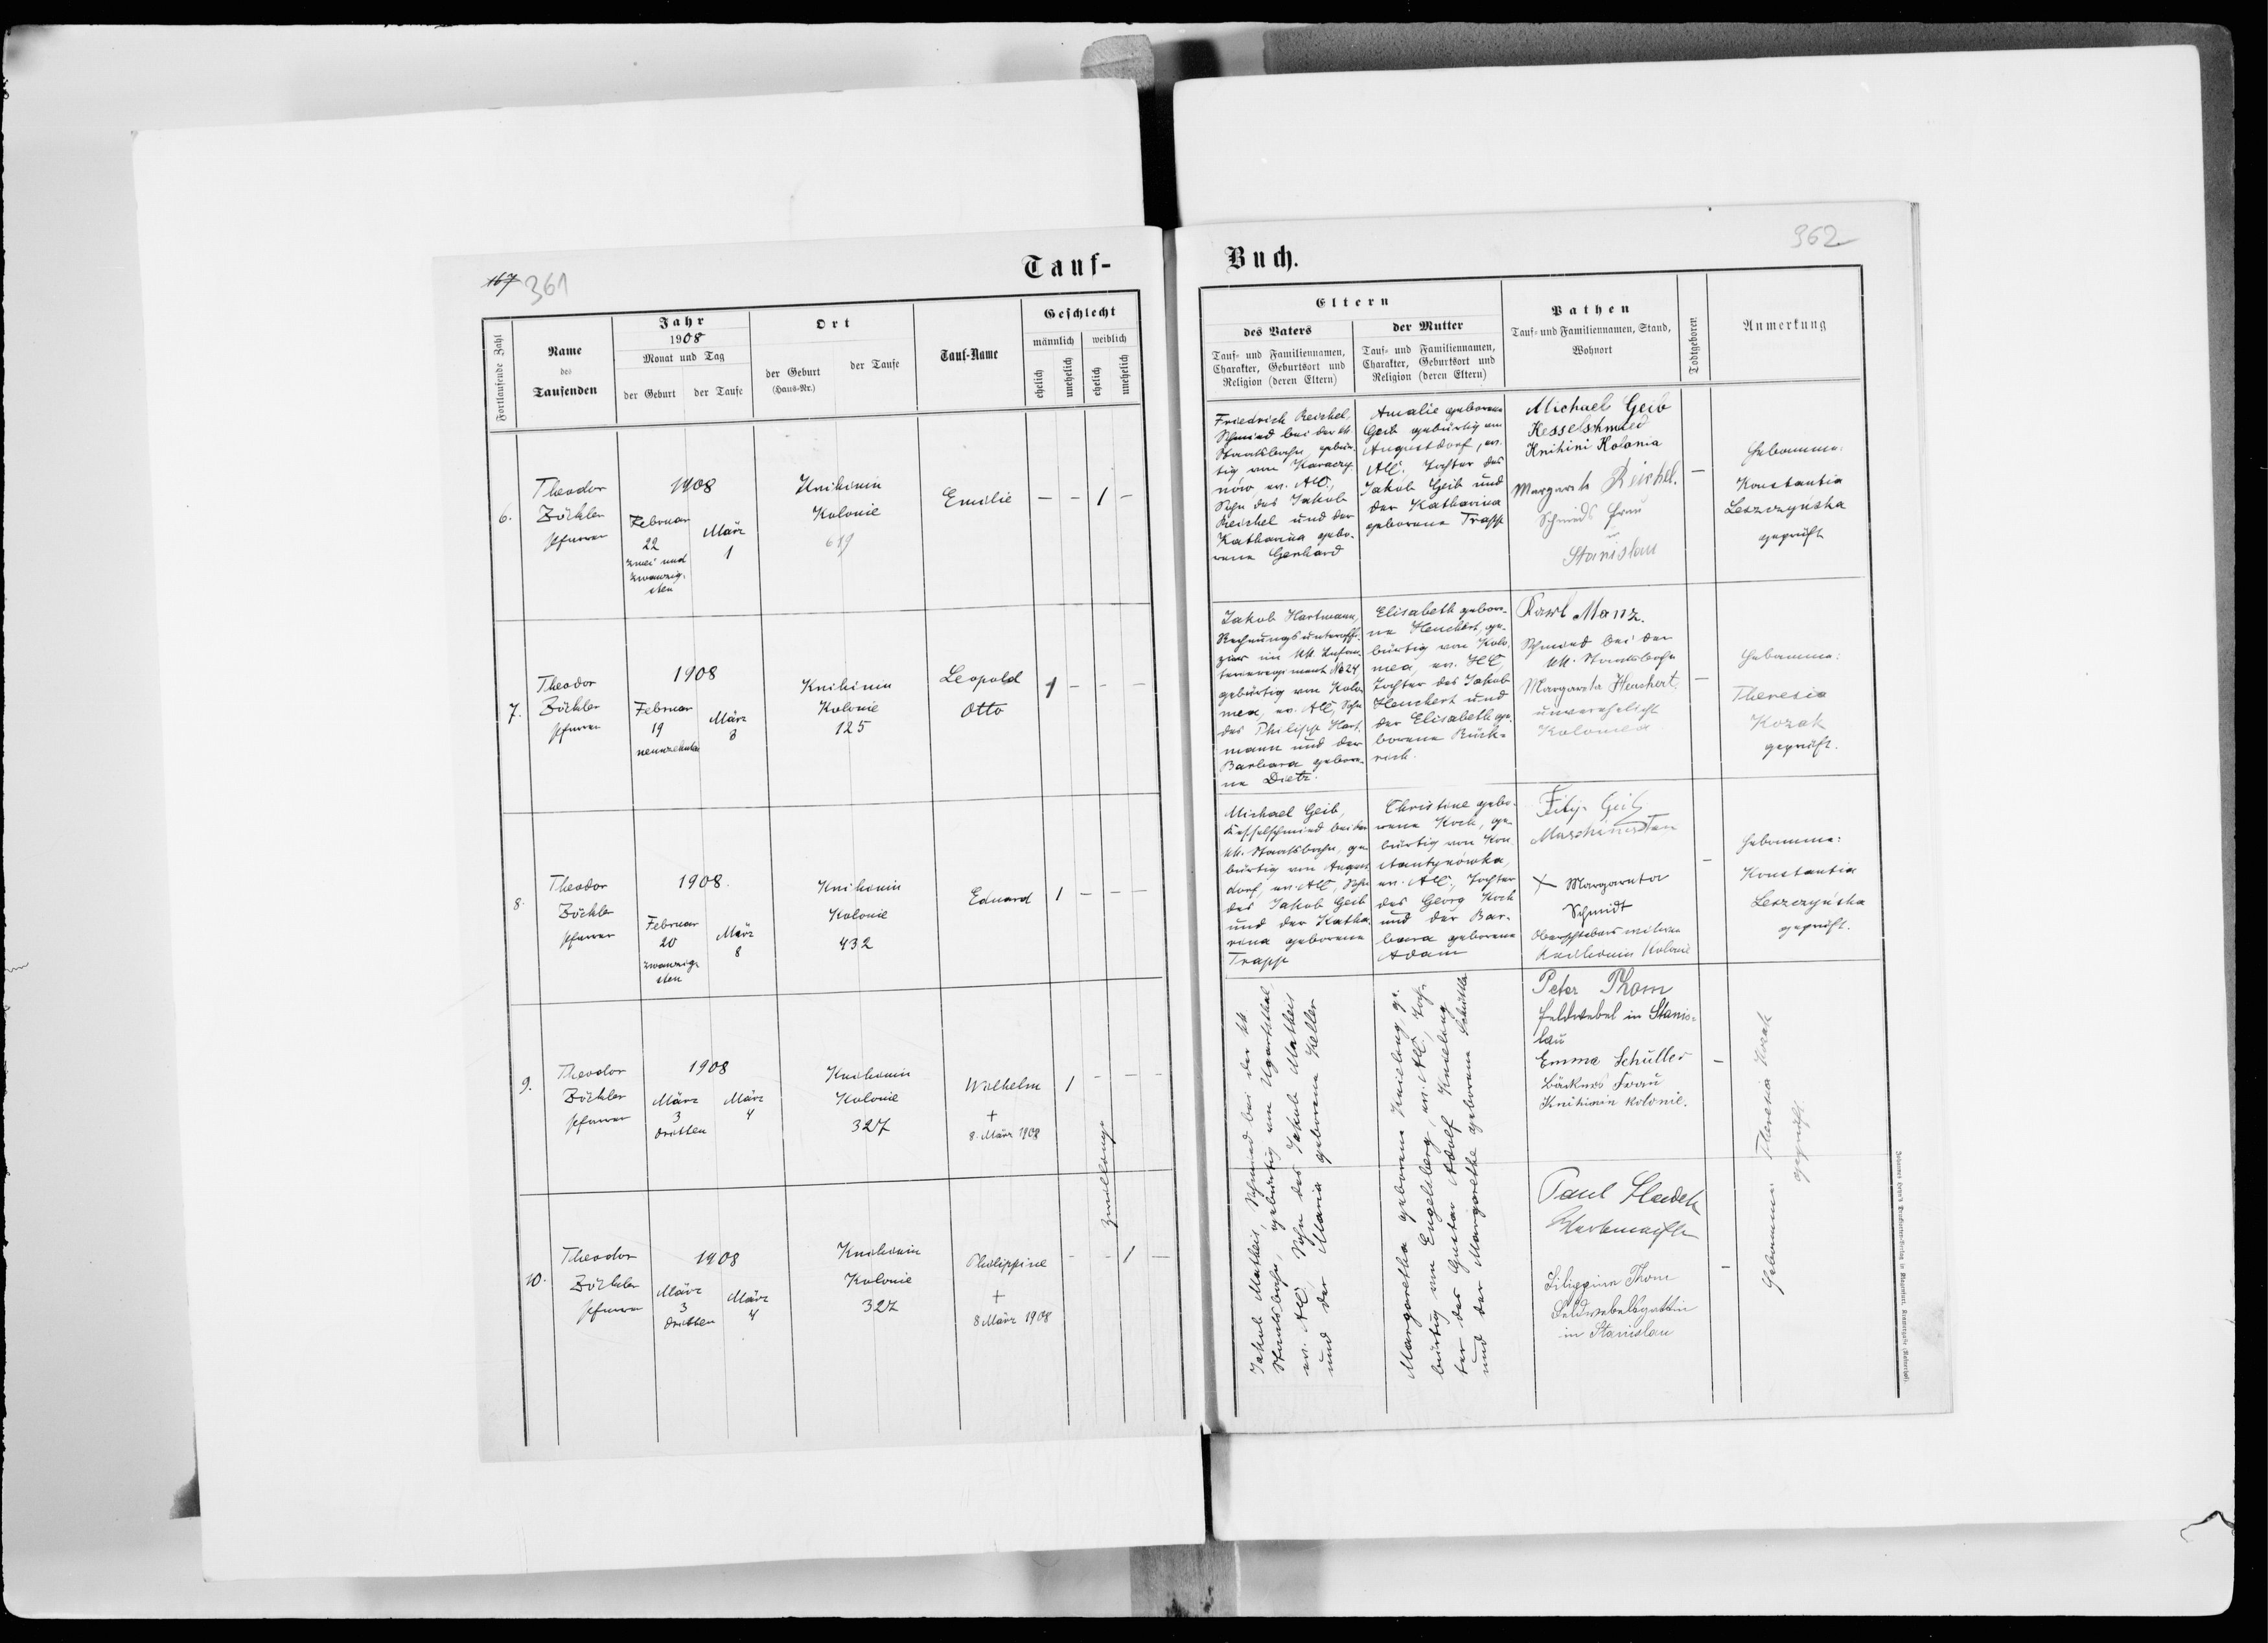 167 361
Tauf-
Fortlaufende Zahl
Name
des
Taufenden
Jahr
1908
Monat und Tag
der Geburt
der Taufe
Ort
der Geburt
(Haus-Nr.)
der Taufe
Tauf-Name
Geschlecht
männlich
weiblich
ehelich
unehelich
ehelich
unehelich
6.
Theodor
Zöckler
Pfarrer
1908
Februar
22
zwei und
zwanzig-
sten
März
1
Knihinin
Kolonie
619
Emilie
— — 1 —
7.
Theodor
Zöckler
Pfarrer
1908
Februar
19
neunzehnten
März
3
Knihinin
Kolonie
125
Leopold
Otto
1 — — —
8.
Theodor
Zöckler
Pfarrer
1908.
Februar
20
zwanzig-
sten
März
8
Knihinin
Kolonie
432
Eduard
1 — — —
9.
Theodor
Zöckler
Pfarrer
1908
März
3
dritten
März
4
Knihinin
Kolonie
327
Wilhelm
+
8. März 1908
1 — — —
Zwillinge
10.
Theodor
Zöckler
Pfarrer
1908
März
3
dritten
März
4
Knihinin
Kolonie
327
Philippine
+
8 März 1908
— — 1 —
Buch.
362
Eltern
des Vaters
Tauf- und Familiennamen,
Charakter, Geburtsort und
Religion (deren Eltern)
der Mutter
Tauf- und Familiennamen,
Charakter, Geburtsort und
Religion (deren Eltern)
Pathen
Tauf- und Familiennamen, Stand,
Wohnort
Todtgeboren
Anmerkung
Friedrich Reichel,
Schmied bei der kk
Staatsbahn, gebür-
tig von Karaczy-
nów, ev. AC.,
Sohn des Jakob
Reichel und der
Katharina gebo-
rene Gerhard
Amalie geborene
Geib gebürtig von
Augustdorf, ev.
AC. Tochter des
Jakob Geib und
der Katharina
geborene Trapp
Michael Geib
Kesselshmied
Knihini Kolonia
Margareta Reichel.
Schmieds Frau
in
Stanislau
—
Hebamme:
Konstantia
Leszczyńska
geprüft
Jakob Hartmann,
Rechnungsunteroffi-
zier im kk. Infan-
terieregiment No 24
gebürtig von Kolo-
mea, ev. AC, Sohn
des Philipp Hart-
mann und der
Barbara gebore-
ne Dietz.
Elisabeth gebore-
ne Henchert, ge-
bürtig von Kolo-
mea, ev. HC,
Tochter des Jakob
Henchert und
der Elisabeth ge-
borene Rück-
rich.
Karl Manz.
Schmied bei der
kk. Staatsbahn
Margareta Henchert,
unverehelicht
Kolomea
—
Hebamme:
Theresia
Kozak
geprüft.
Michael Geib,
Kesselschmied bei der
kk. Staatsbahn, ge-
bürtig von August-
dorf, ev. AC, Sohn
des Jakob Geib
und der Katha-
rina geborene
Trapp
Christine gebo-
rene Koch, ge-
bürtig von Kon-
stantynówka,
ev. AC., Tochter
des Georg Koch
und der Bar-
bara geborene
Adam
Filip Geib
Maschinisten
X Margareta
Schmidt
Knihinin Kolonie
—
Hebamme:
Konstantia
Leszczyńska
geprüft.
Jakob Matheis, Schmied bei der kk
Staatsbahn, gebürtig von Ugartsthal,
ev. AC, Sohn des Jakob Matheis
und der Maria geborene Keller
Margaretha geborene Knieling, ge-
bürtig von Engelsberg, ev. AC., Toch-
ter des Gustav Adolf Knieling
und der Margarethe geborene Schüttla
Peter Thom
Feldwebel in Stanis-
lau
Emma Schüller
Bäckers Frau
Knihinin Kolonie.
—
Paul Sladek
Werkmeister
Filippine Thom
Feldwebelsgattin
in Stanislau
—
Hebamme: Theresia Kozak
geprüft.